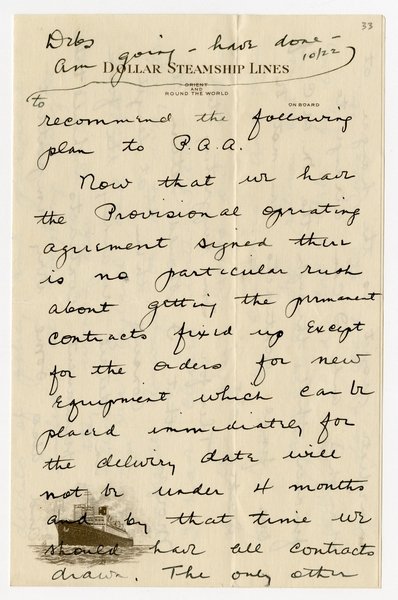 33
Debs
Am going - have done -
10/22
DOLLAR STEAMSHIP LINES
ORIENT
AND
ROUND THE WORLD
ON BOARD
to
recommend the following
plan to P.A.A.
Now that we have
the Provisional operating
agreement signed there
is no particular rush
about getting the permanent
contracts fixed up Except
for the orders for new
Equipment which can be
placed immediately for
the delivery date will
not be under 4 months
and by that time we
should have all contracts
drawn. The only other